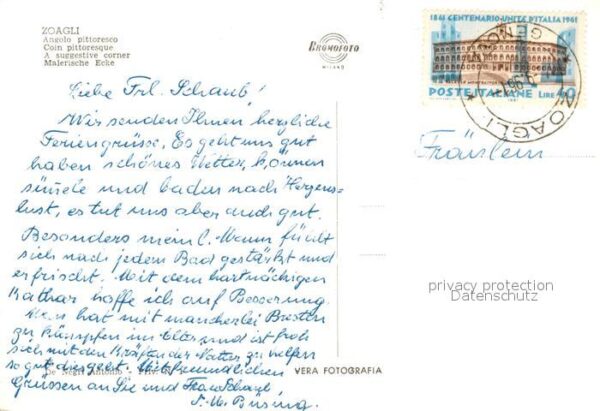 ZOAGLI
Angolo pittoresco
Coin pittoresque
A suggestive corner
Malerische Ecke
Bromofoto
MILANO
1861 CENTENARIO UNITÀ D'ITALIA 1961
POSTE ITALIANE LIRE 40
ZOAGLI
GENOVA
Liebe Frl. Schaub!
Wir senden Ihnen herzliche
Feriengrüsse. Es geht uns gut
haben schönes Wetter, können
und baden nach Herzens-
lust, es tut uns aber auch gut.
Besonders mein l. Mann fühlt
sich nach jedem Bad gestärkt und
erfrischt. Mit dem hartnäckigen
Kathar hoffe ich auf Besserung.
Man hat mit mancherlei Bresten
zu kämpfen im Alter und ist froh
sich mit den Kräften der Natur zu helfen
so gut dies geht. Mit freundlichen
Grüssen an Sie und Frau Schaub
Fräulein
privacy protection
Datenschutz
De Negri Antonio
VERA FOTOGRAFIA
Büsing